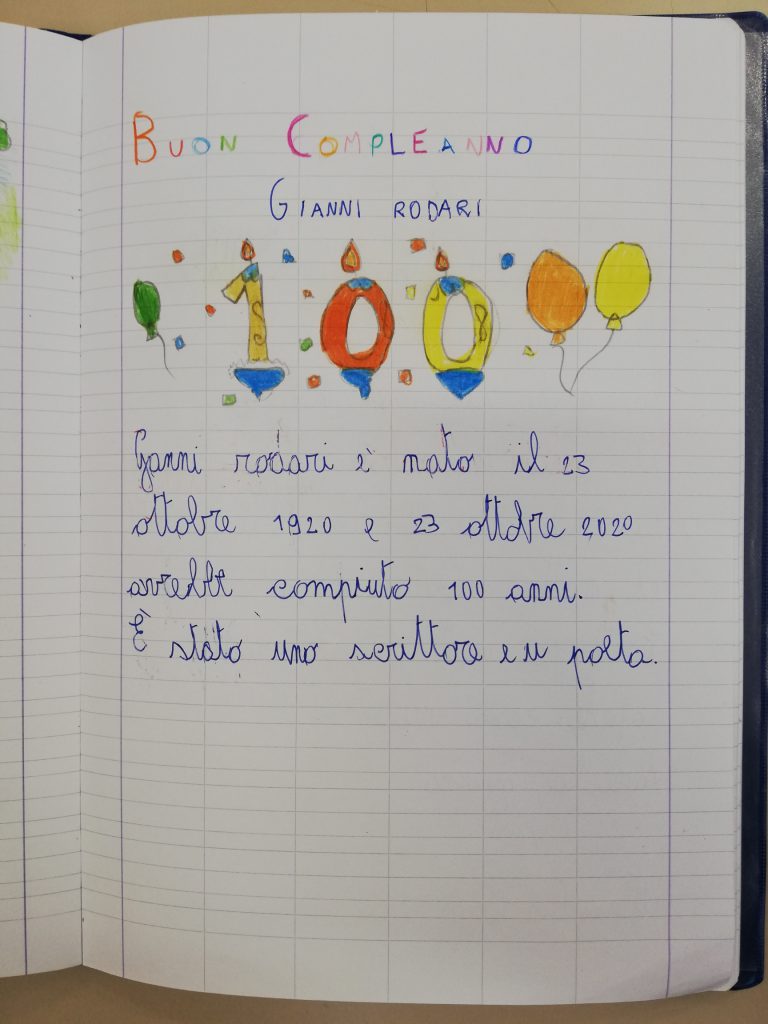 BUON COMPLEANNO
GIANNI RODARI
100
Ganni rodari è nato il 23
ottobre 1920 e 23 ottobre 2020
avrebbe compiuto 100 anni.
È stato uno scrittore e u poeta.